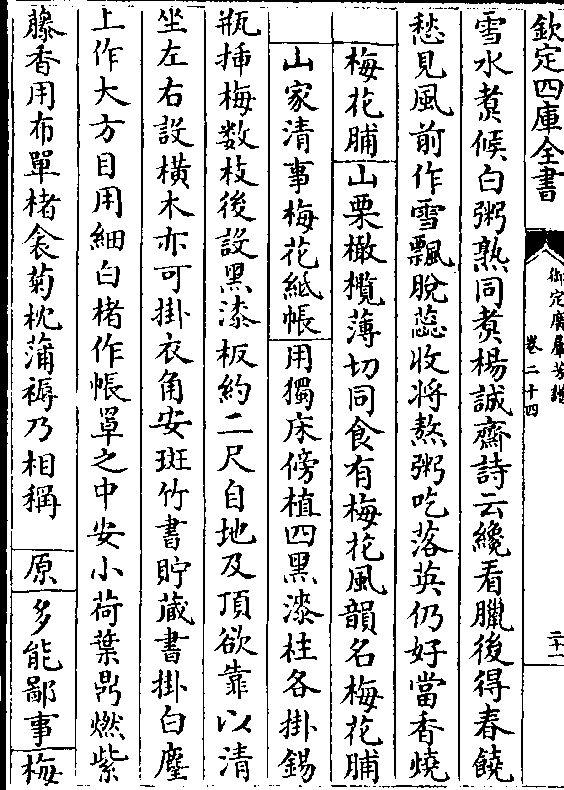 欽定四庫全書
御定廣羣芳譜
卷二十四
二十一
雪水煑候白粥熟同煑楊誠齋詩云纔看臘後得春饒
愁見風前作雪飄脫蕊收將熬粥吃落英仍好當香燒
梅花脯山栗橄欖薄切同食有梅花風韻名梅花脯
山家清事梅花紙帳用獨床傍植四黑漆柱各掛錫
瓶揷梅数枝後設黑漆板約二尺自地及頂欲靠以清
坐左右設横木亦可掛衣角安斑竹書貯藏書掛白麈
上作大方目用細白楮作帳罩之中安小荷葉鼎燃紫
藤香用布單楮衾菊枕蒲褥乃相稱 原 多能鄙事梅